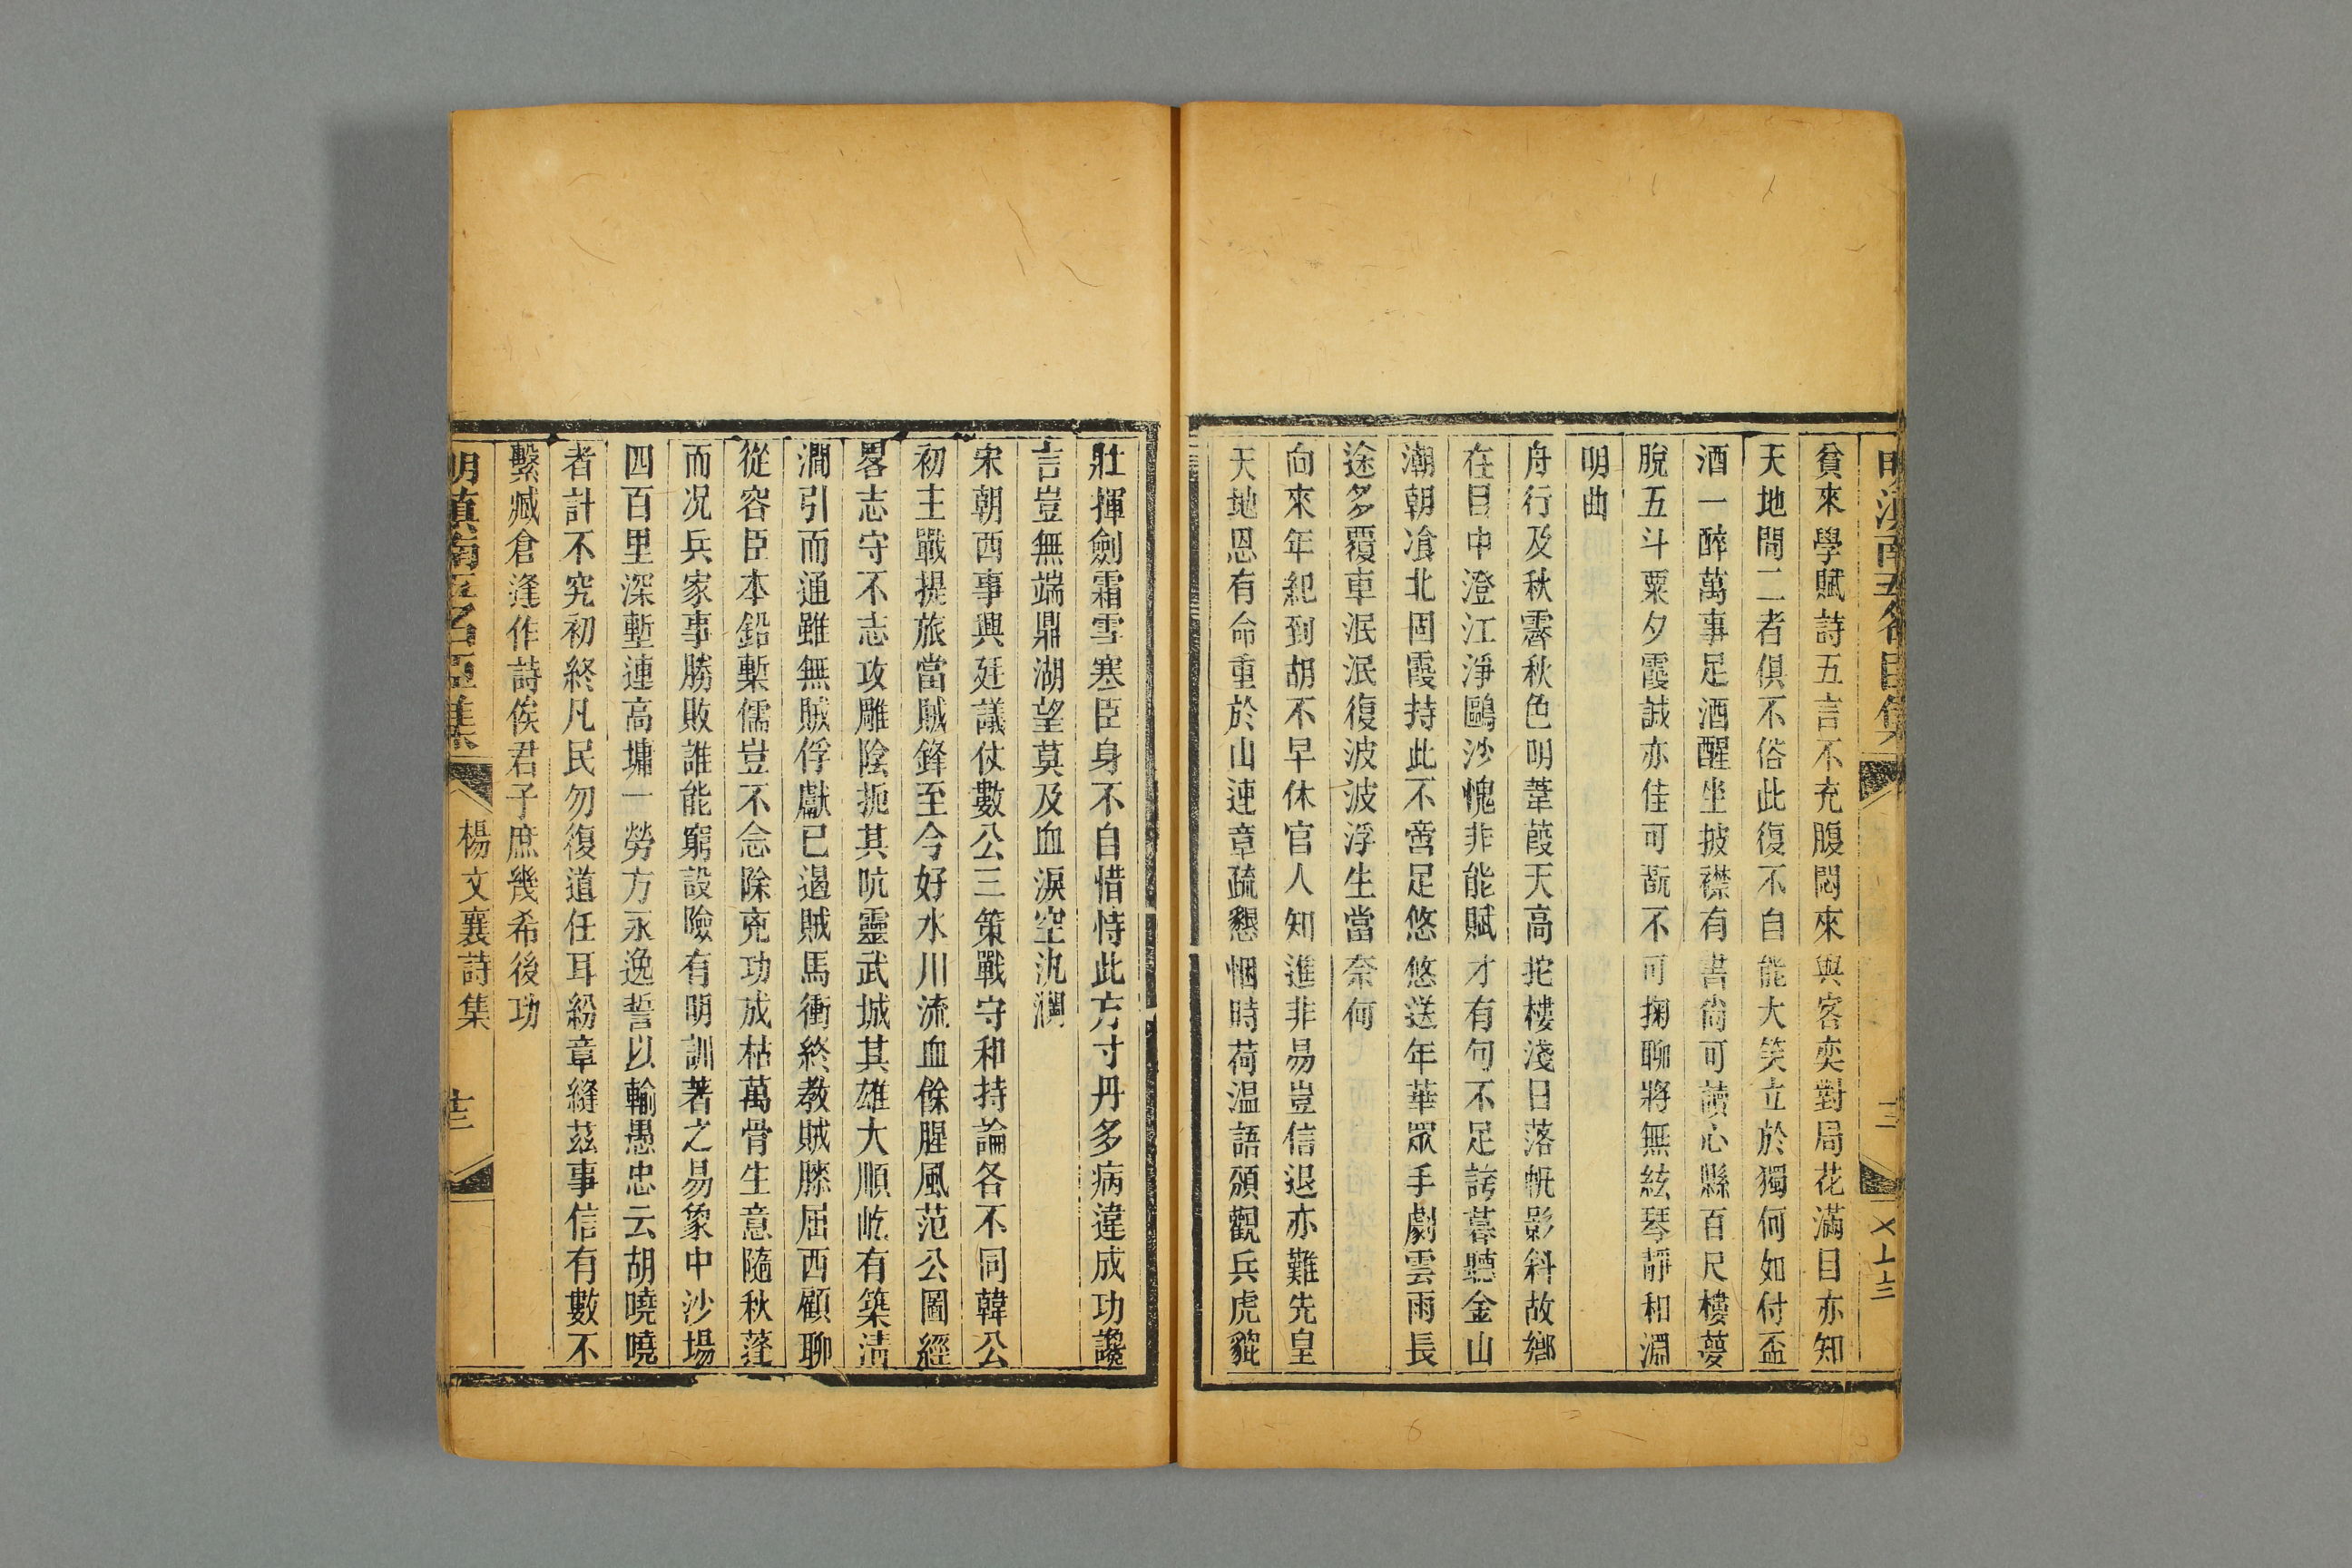 明滇南五名臣集
貧來學賦詩五言不充腹悶來與客奕對局花滿目亦知
天地間二者俱不俗此復不自能大笑立於獨何如付盃
酒一醉萬事足酒醒坐披襟有書尚可讀心縣百尺樓夢
脫五斗粟夕霞誠亦佳可翫不可掬聊將無絃琴靜和淵
明曲
舟行及秋霽秋色明葦葭天高挓樓淺日落帆影斜故鄉
在目中澄江淨鷗沙愧非能賦才有句不足誇暮聽金山
潮朝飡北固霞持此不啻足悠悠送年華眾手劇雲雨長
途多覆車泯泯復波波浮生當奈何
向來年紀到胡不早休官人知進非易豈信退亦難先皇
天地恩有命重於山連章疏懇悃時荷温語頒觀兵虎貔
壯揮劍霜雪寒臣身不自惜恃此方寸丹多病違成功讒
言豈無端鼎湖望莫及血淚空汍瀾
宋朝西事興廷議仗數公三策戰守和持論各不同韓公
初主戰提旅當賊鋒至今好水川流血餘腥風范公圖經
畧志守不志攻雕陰扼其吭靈武城其雄大順屹有築清
澗引而通雖無賊俘獻已遏賊馬衝終教賊膝屈西顧聊
從容臣本鉛槧儒豈不念除兇功成枯萬骨生意隨秋蓬
而况兵家事勝敗誰能窮設險有明訓著之易象中沙場
四百里深塹連高墉一勞方永逸誓以輸愚忠云胡嘵嘵
者計不究初終凡民勿復道任耳紛章縫茲事信有數不
繫臧倉逢作詩俟君子庶幾希後功
明滇南五名臣集
楊文襄詩集